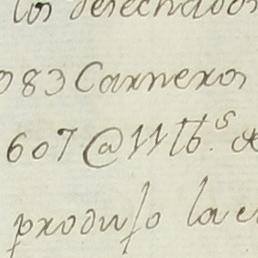 los desechados
983 Carneros
607 @ 11 lb.s de
produjo la